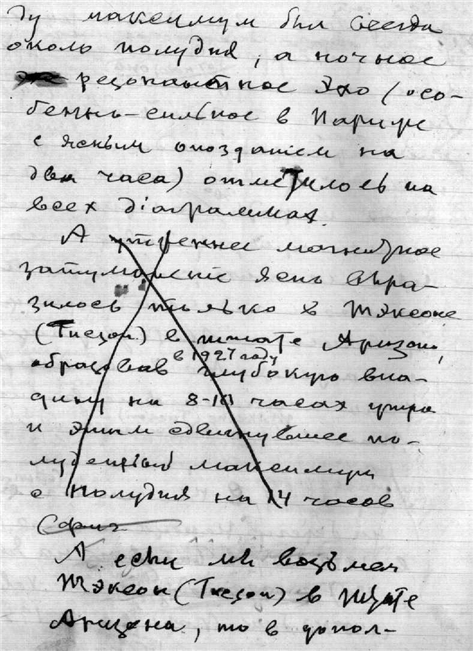 ду максимум был всегда
около полудня, а ночное
резонантное эхо (осо-
бенно-сильное в Париже
с ясным опозданием на
два часа) отметилось на
всех діаграммах.
А утреннее магнитное
затуманение выра-
зилось только в Тэксоне
(Тиезон) в штате Аризона,
в 1927 году
образовав глубокую впа-
дину на 8-10 часах утра
и этим сдвинувшее по-
луденный максимум
с полудня на 14 часов
А если мы возьмем
Тэксон (Тиезон) в Штате
Аризона, то в допол-